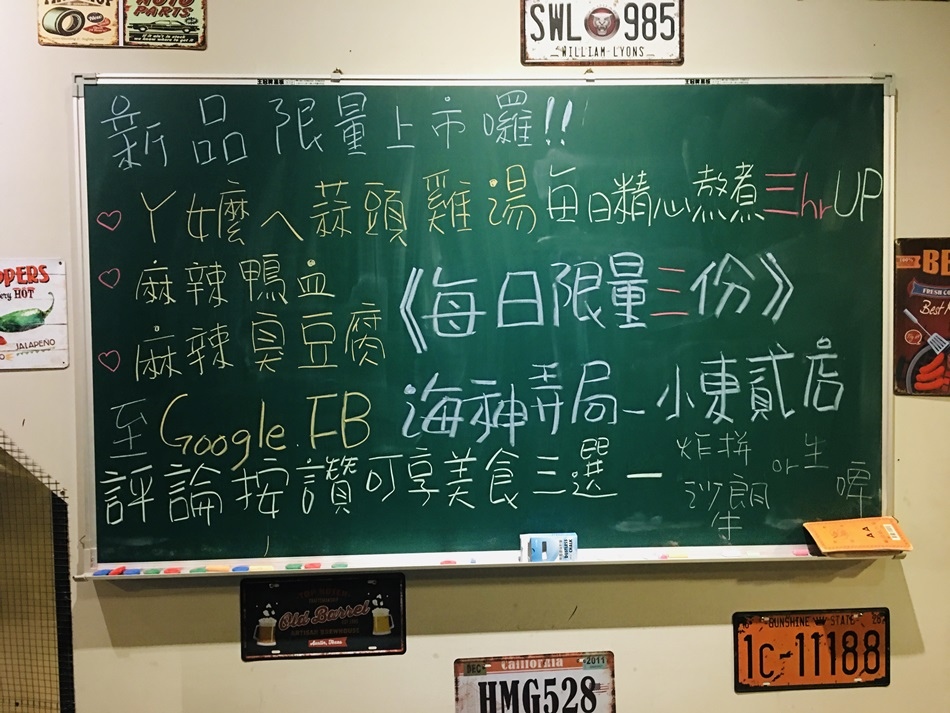 AUTO
PARTS
SWL 985
WILLIAM-LYONS
新品限量上市囉!!
♡ ㄚ嬤ㄟ蒜頭雞湯 每日精心熬煮三hrUP
♡ 麻辣鴨血
♡ 麻辣臭豆腐
《每日限量三份》
至Google.FB 海神弄局-小東貳店
評論按讚可享美食三選一
炸拼 or 生啤
沙朗牛
PPERS
HOT
JALAPEÑO
100%
BE
FRESH CO
Best
Old Barrel
SUNSHINE STATE
1c-11188
DEC California 2011
HMG528